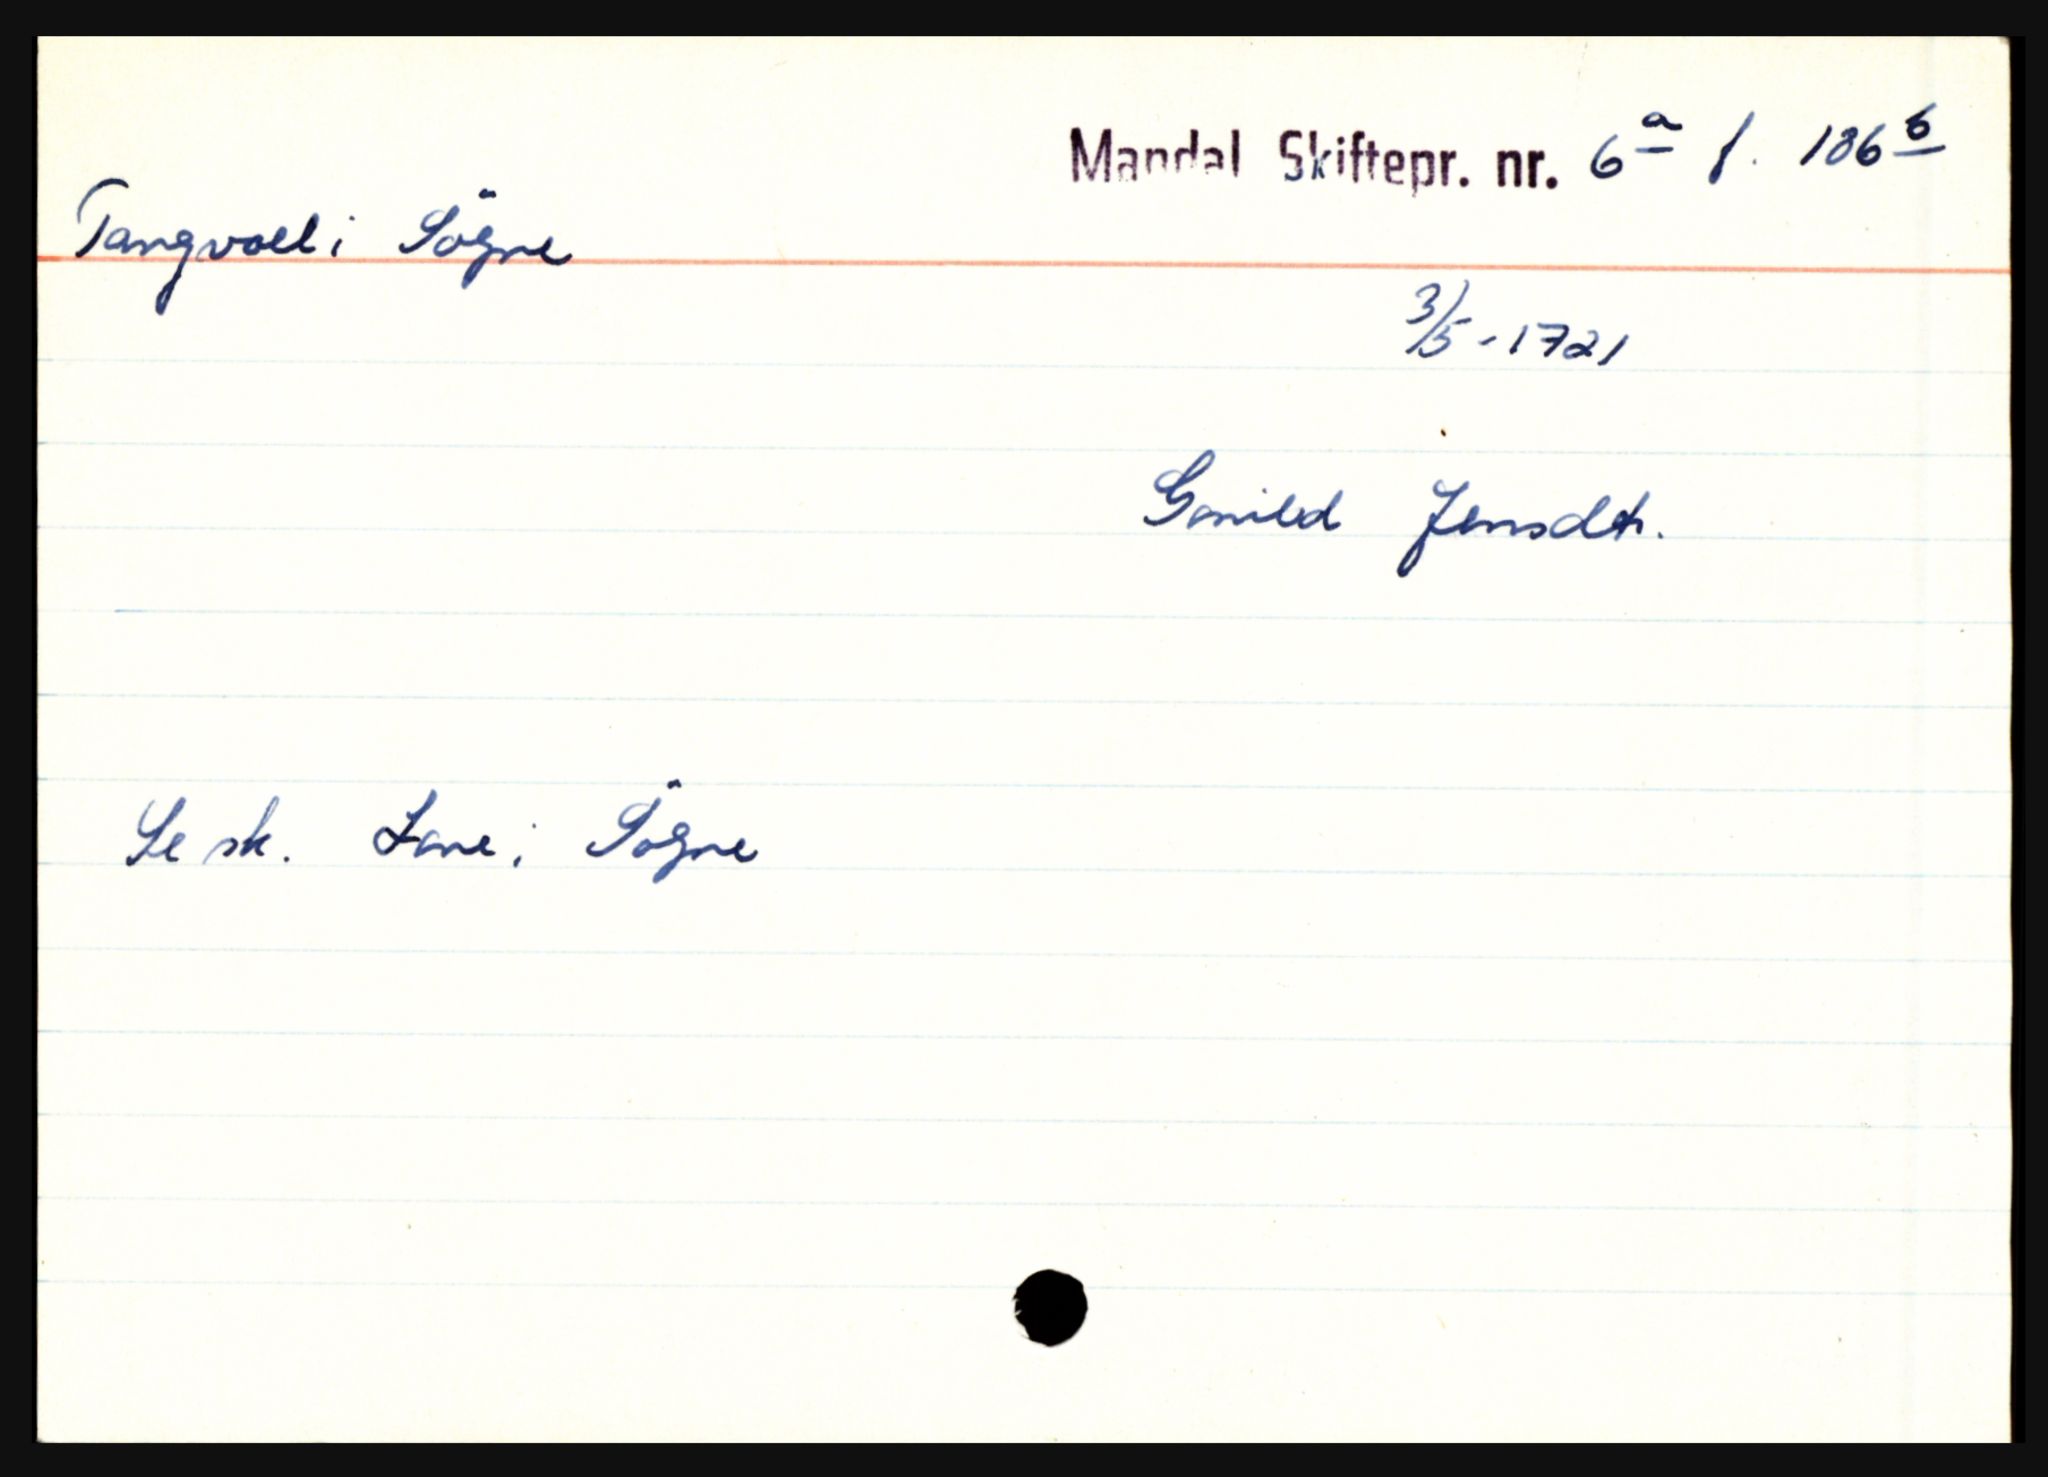 Mandal Skiftepr. nr. 6a f. 186b
Tangvall i Sögne
3/5-1721
Gunild Jensdtr.
Se sk. Lone i Sögne